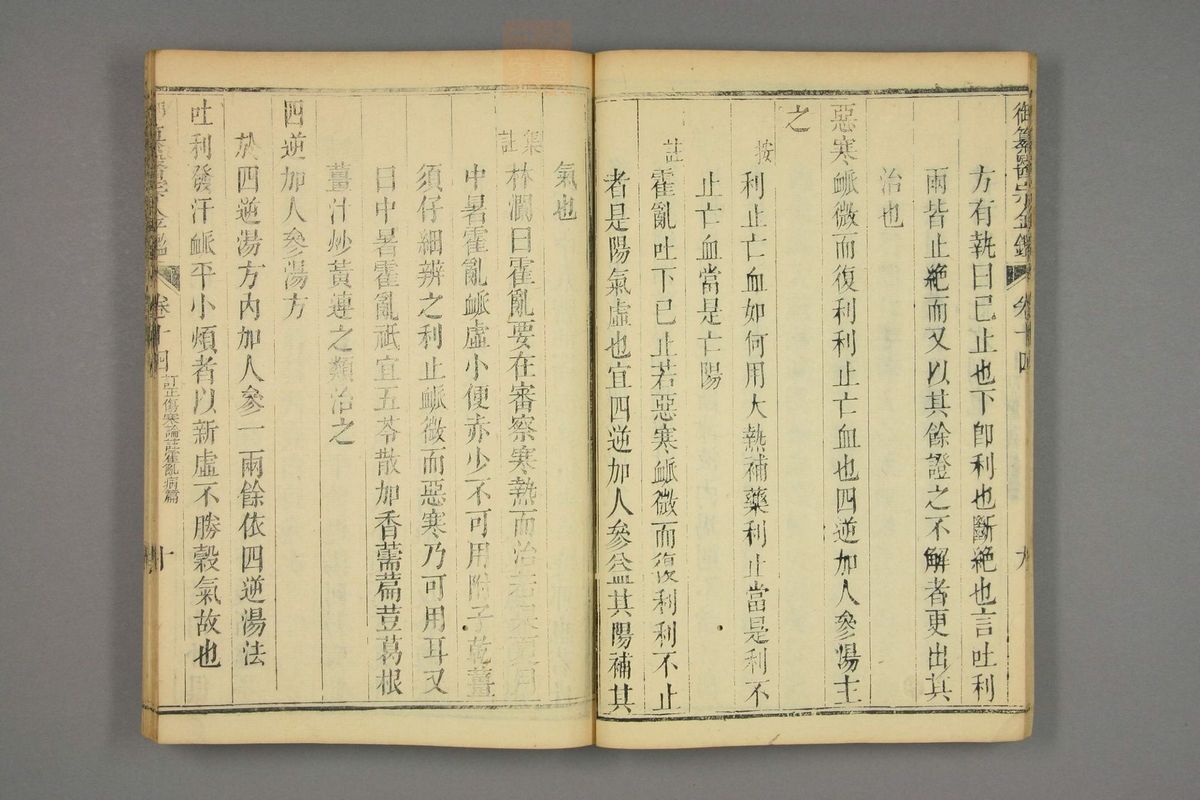 御纂醫宗金鑑 卷十四 九
方有執曰已止也下卽利也斷絶也言吐利
兩皆止絶而又以其餘證之不解者更出其
治也
惡寒脈微而復利利止亡血也四逆加人參湯主
之
按
利止亡血如何用大熱補藥利止當是利不
止亡血當是亡陽
註
霍亂吐下已止若惡寒脈微而復利利不止
者是陽氣虛也宜四逆加人參益其陽補其
氣也
集註
林瀾曰霍亂要在審察寒熱而治若果夏月
中暑霍亂脈虛小便赤少不可用附子乾薑
須仔細辨之利止脈微而惡寒乃可用耳又
曰中暑霍亂祇宜五苓散加香薷藊荳葛根
薑汁炒黃連之類治之
四逆加人參湯方
於四逆湯方內加人參一兩餘依四逆湯法
吐利發汗脈平小煩者以新虛不勝穀氣故也
卷十四 訂正傷寒論註霍亂病篇 十